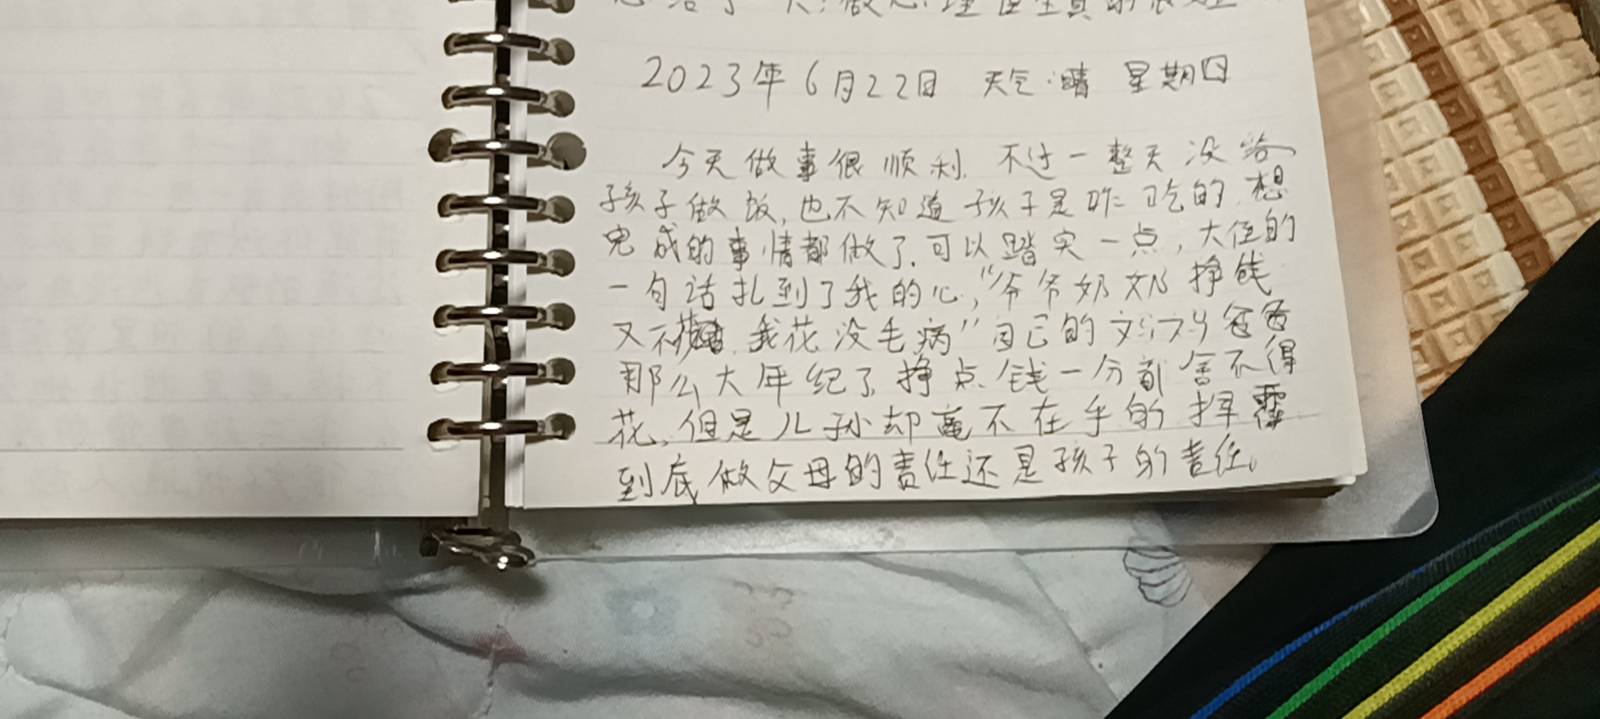 2023年6月22日 天气:晴 星期四
今天做事很顺利,不过一整天没给
孩子做饭,也不知道孩子是咋吃的,想
完成的事情都做了,可以踏实一点,大侄的
一句话扎到了我的心,"爷爷奶奶挣钱
又不花,我花没毛病"自己的妈妈爸爸
那么大年纪了,挣点钱一分都舍不得
花,但是儿孙却毫不在乎的挥霍
到底做父母的责任还是孩子的责任。